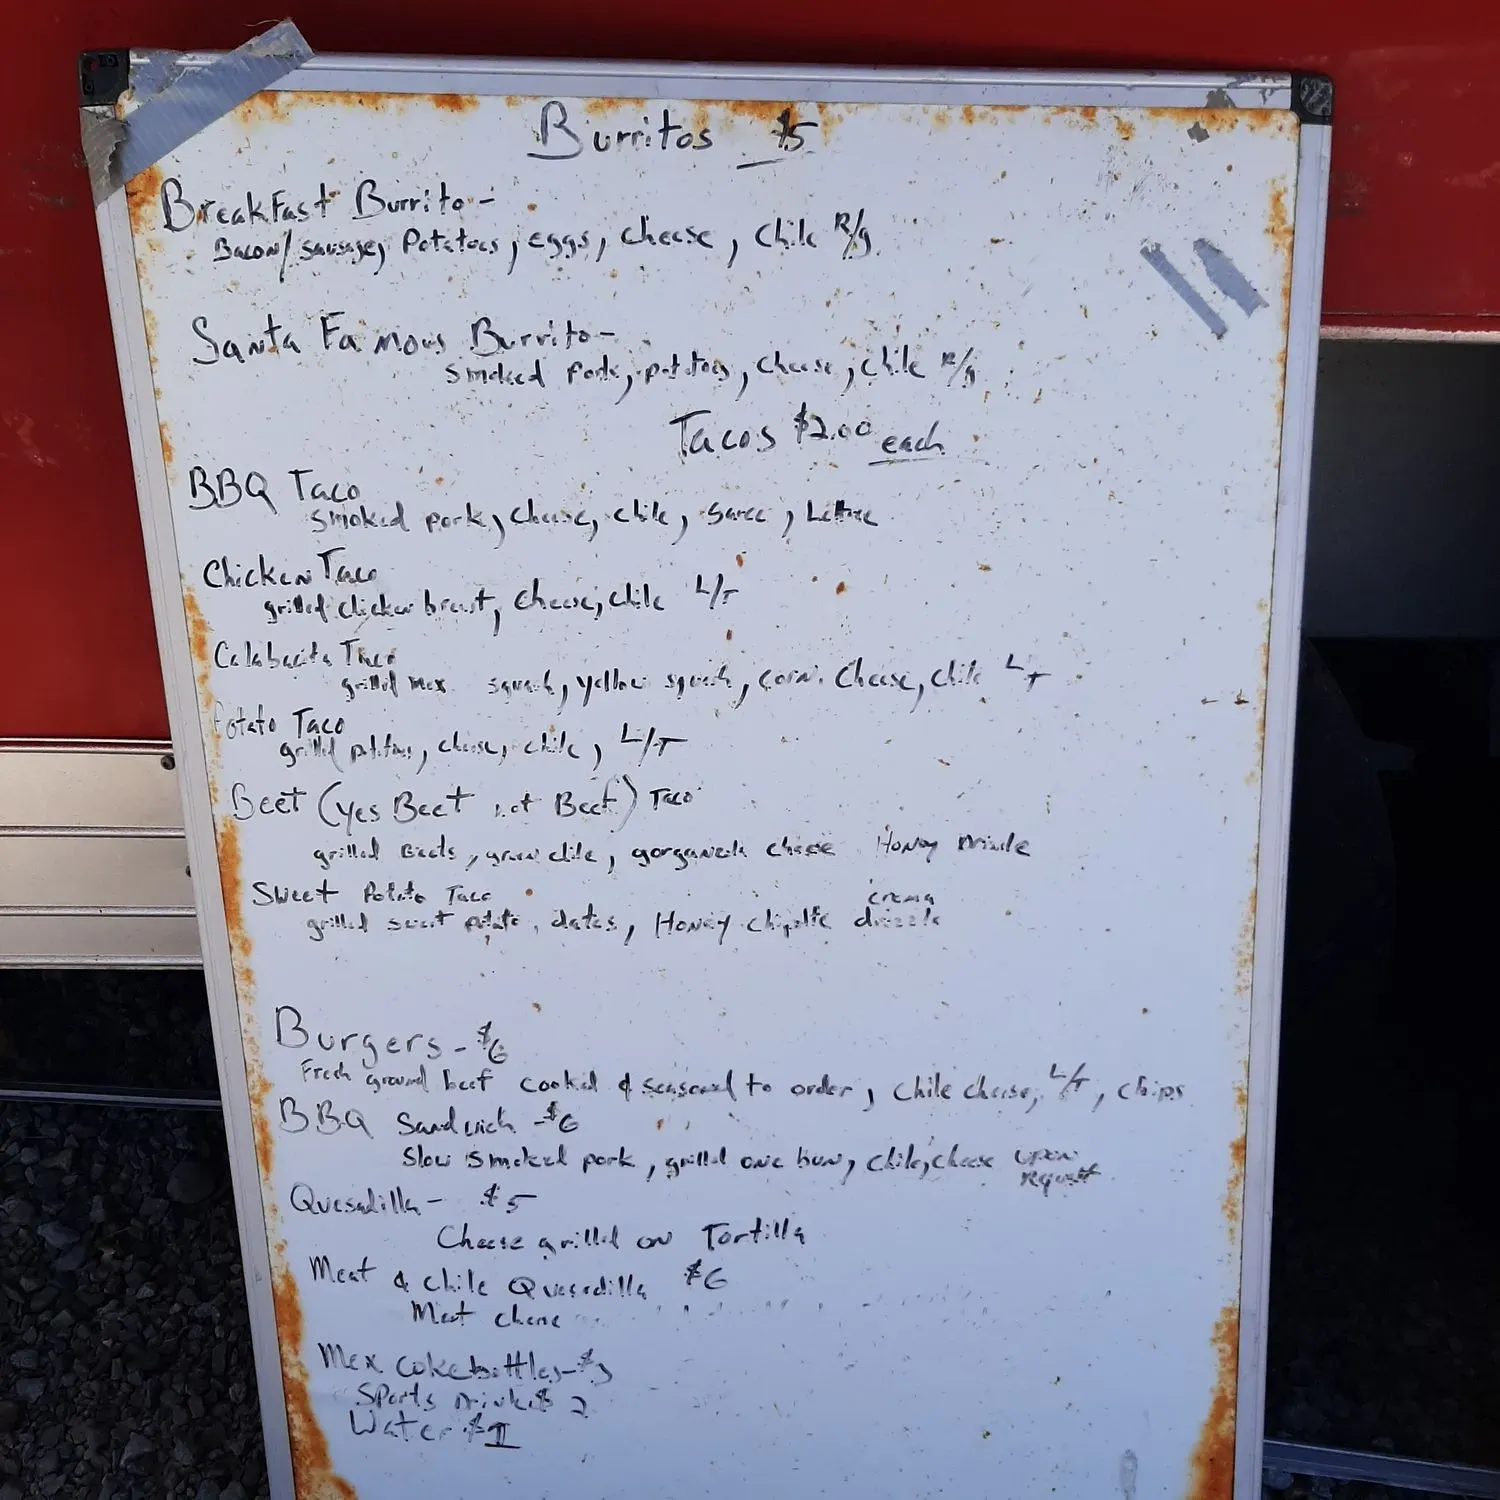 Burritos $5
Breakfast Burrito -
Bacon/sausage, Potatoes, eggs, cheese, chile R/g
Santa Famous Burrito -
smoked pork, potatoes, cheese, chile R/g
Tacos $2.00 each
BBQ Taco
smoked pork, cheese, chile, sauce, Lettuce
Chicken Taco
grilled chicken breast, cheese, chile L/T
Calabacita Taco
grilled mex squash, yellow squash, corn, cheese, chile L/T
Potato Taco
grilled potatoes, cheese, chile, L/T
Beet (yes Beet not Beef) Taco
grilled Beets, green chile, gorganzola cheese Honey
Sweet Potato Taco
grilled sweet potato, dates, Honey chipotle crema drizzle
Burgers - $6
Fresh ground beef cooked & seasoned to order, chile cheese, L/T, chips
BBQ Sandwich - $6
Slow smoked pork, grilled bun, chile, cheese upon request
Quesadilla - $5
Cheese grilled on Tortilla
Meat & chile Quesadilla $6
Meat cheese
Mex coke bottles - $3
Sports Drinks 2
Water $1